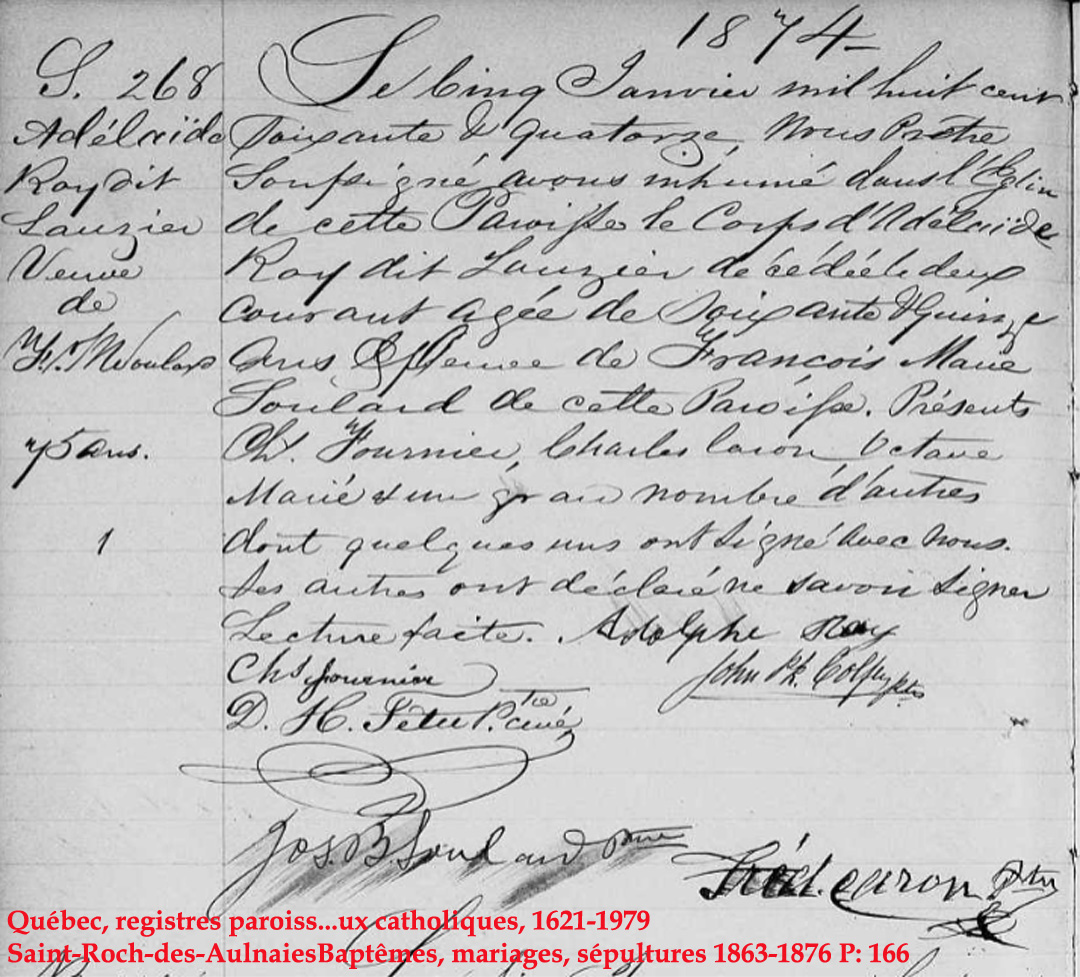 1874
S. 268
Adélaïde
Roy dit
Lauzier
Veuve
de
F. M Soulard
75 ans.
1
Le Cinq Janvier mil huit cent
Soixante & quatorze, Nous Prêtre
Soussigné avons inhumé dans l'Eglise
de cette Paroisse le Corps d'Adélaïde
Roy dit Lauzier décédée le deux
courant agée de Soixante & Quinze
Ans Veuve de François Marie
Soulard de cette Paroisse. Présents
Chs. Fournier, Charles Caron Octave
Marié & un gran nombre d'autres
dont quelques uns ont signé avec nous.
Les autres ont déclaré ne savoir signer
Lecture faite. Adolphe Roy
Chs Fournier
John Ph.
D. H. Têtu Ptre curé
Jos. B. Soulard Ptre
Fréd. Caron Ptre
Québec, registres paroiss...ux catholiques, 1621-1979
Saint-Roch-des-AulnaiesBaptêmes, mariages, sépultures 1863-1876 P: 166